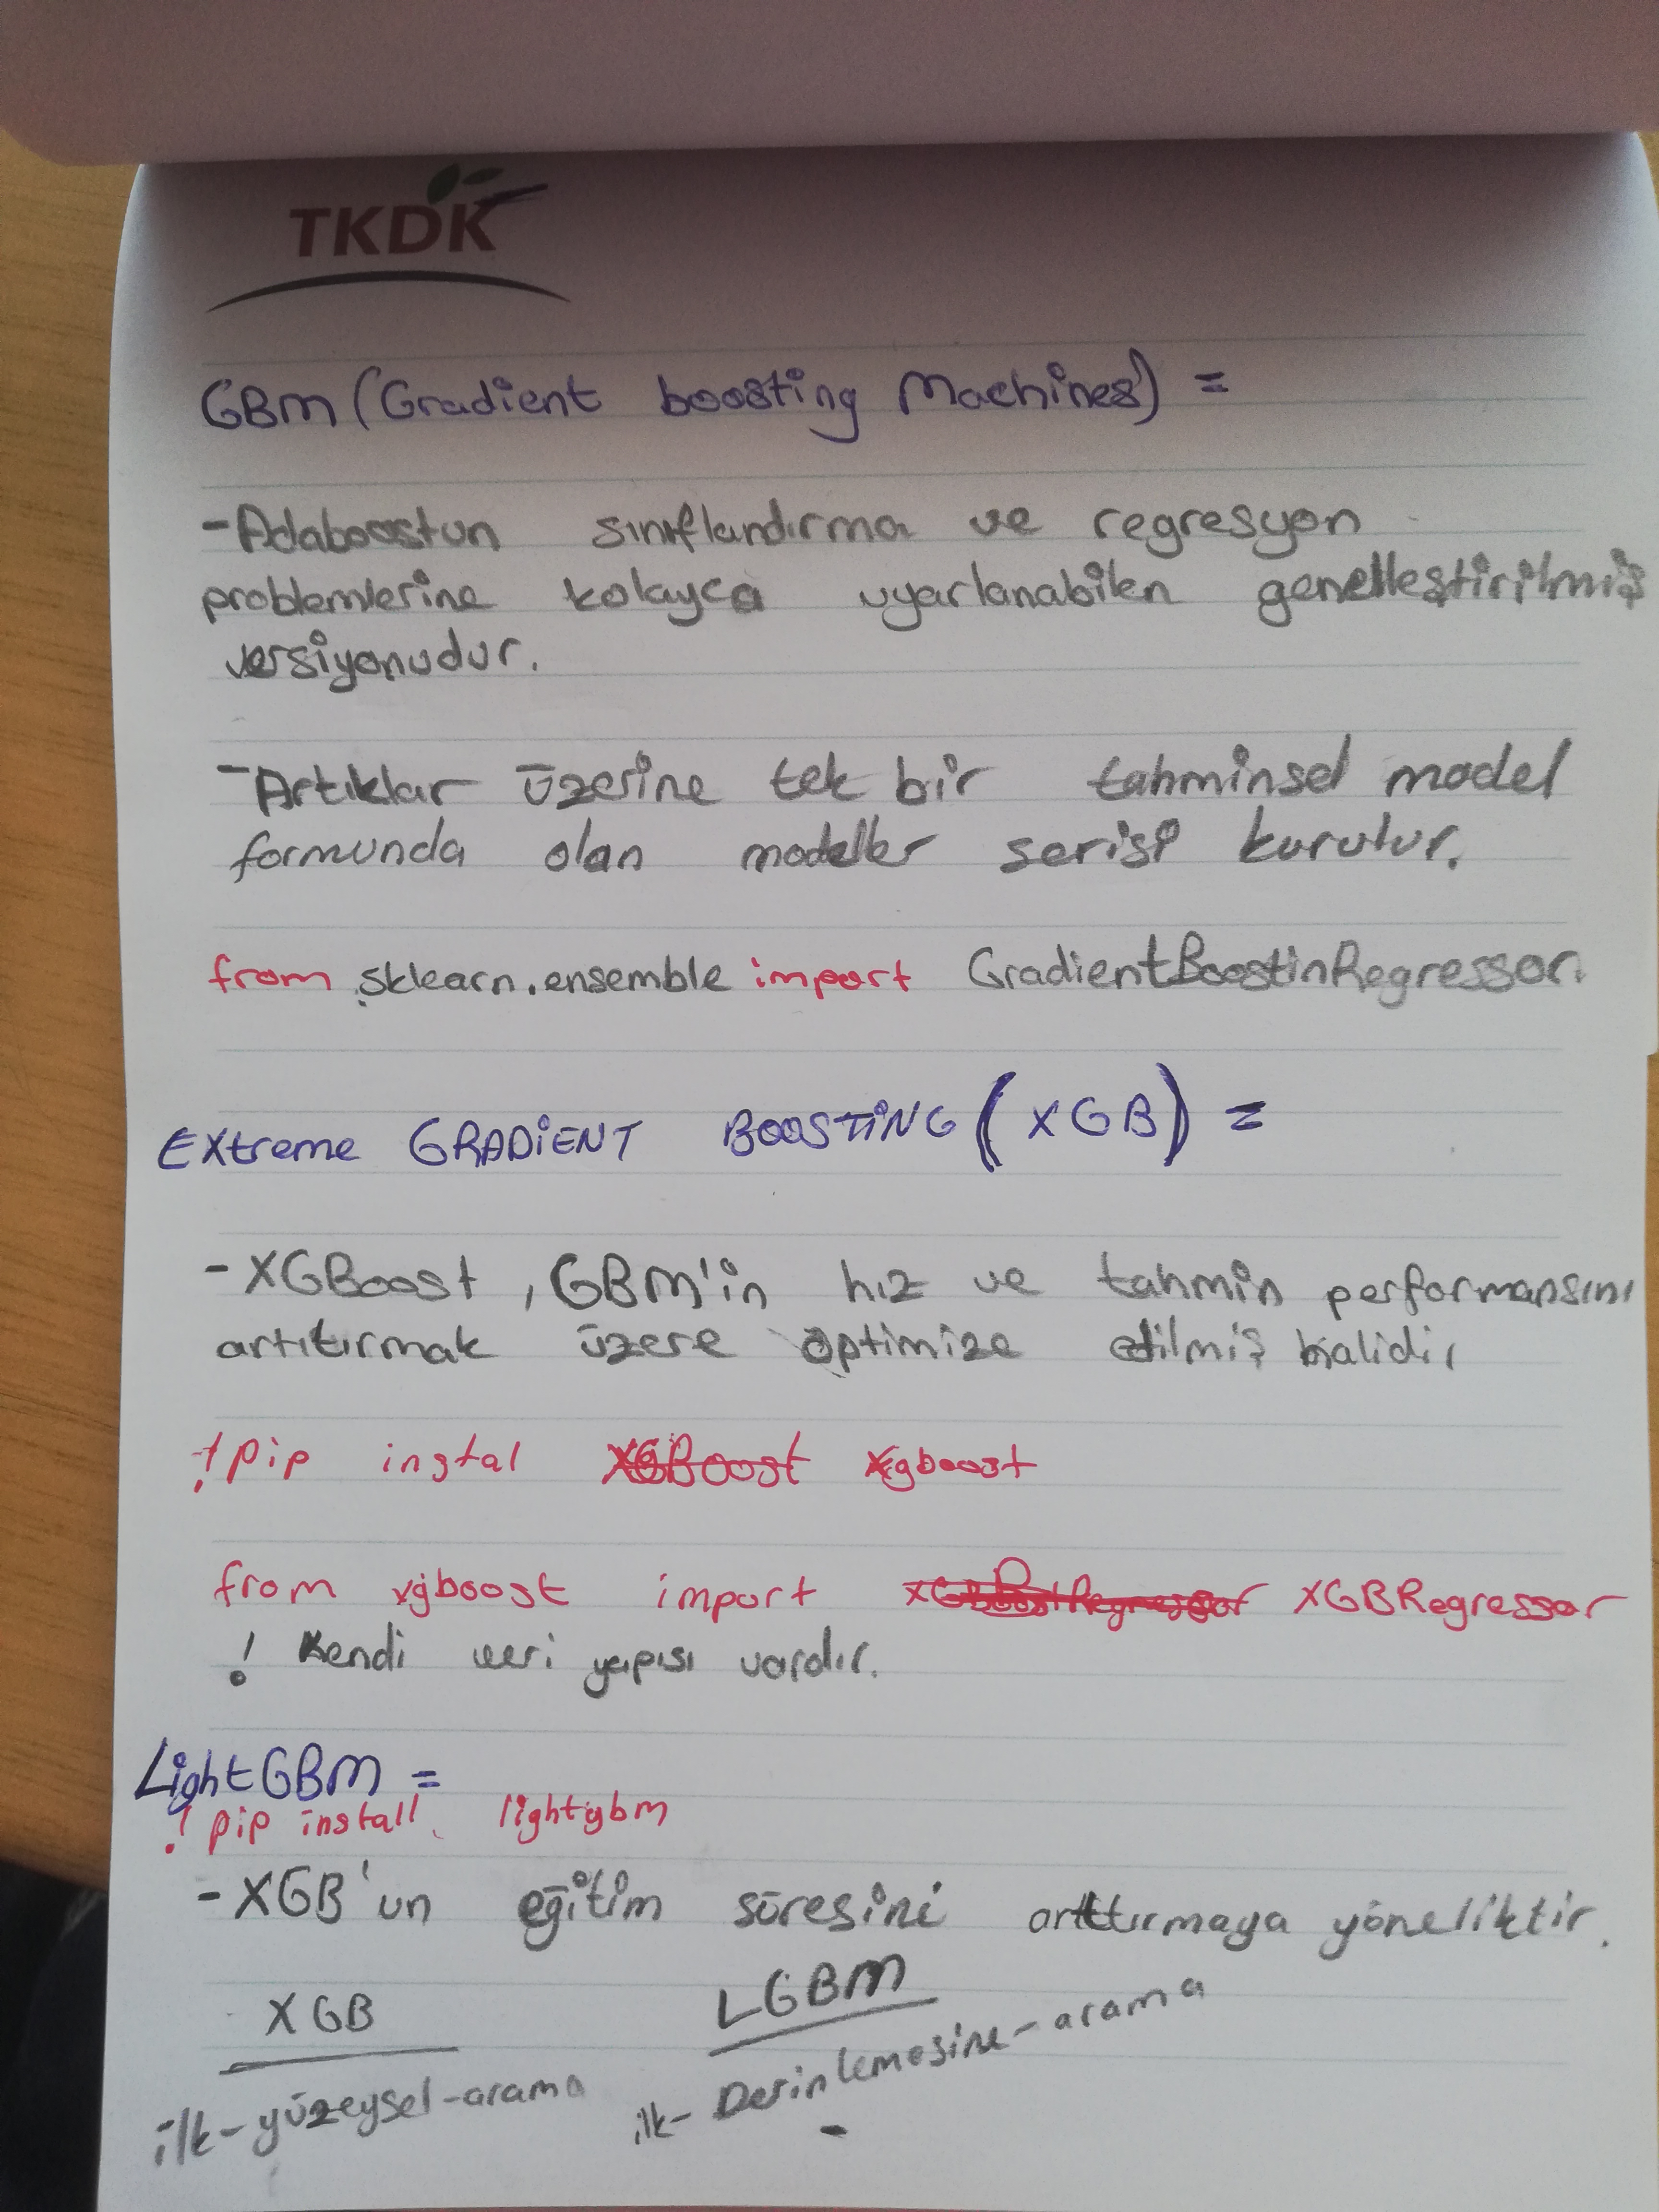 TKDK
GBM (Gradient boosting Machines) =
- Adaboostun sınıflandırma ve regresyon
problemlerine kolayca uyarlanabilen genelleştirilmiş
versiyonudur.
- Artıklar üzerine tek bir tahminsel model
formunda olan modeller serisi kurulur.
from sklearn.ensemble import GradientBoostinRegressor.
EXtreme GRADİENT BOOSTİNG (XGB) =
- XGBoost, GBM'in hız ve tahmin performansını
artıtırmak üzere optimize edilmiş halidir
!pip instal XGBoost xgboost
from xgboost import XGBBoostRegressor XGBRegressor
! Kendi veri yapısı vardır.
LightGBM =
! pip install lightgbm
- XGB'un eğitim süresini arttırmaya yöneliktir.
XGB LGBM
ilk-yüzeysel-arama ilk-Derinlemesine-arama